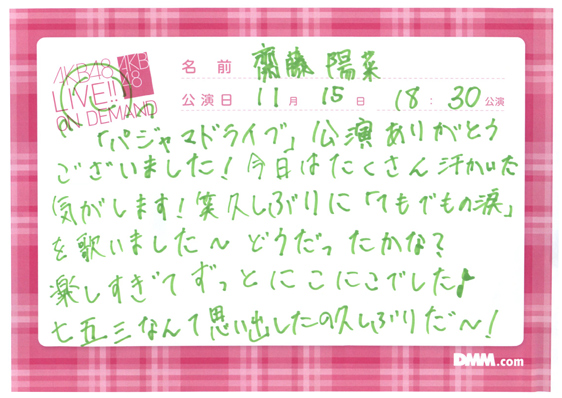 AKB48
LIVE!!
ON DEMAND
AKB
48
名前 齋藤 陽菜
公演日 11月15日 18:30公演
「パジャマドライブ」公演ありがとう
ございました！今日はたくさん汗かいた
気がします！笑久しぶりに「てもでもの涙」
を歌いました〜どうだったかな？
楽しすぎてずっとにこにこでした♪
七五三なんて思い出したの久しぶりだ〜！
DMM.com